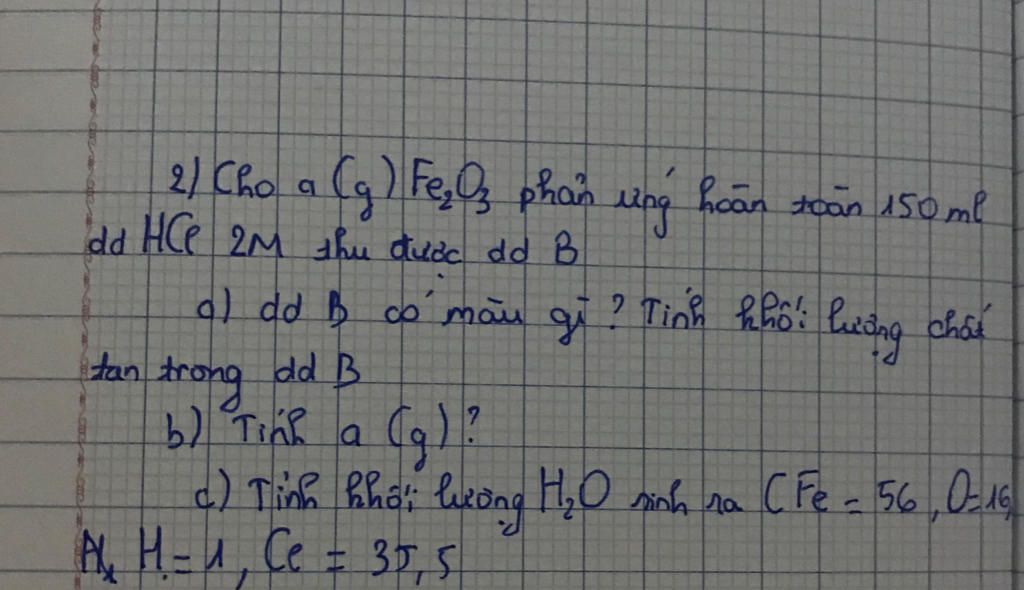 2) Cho a (g) Fe₂O₃ phản ứng hoàn toàn 150 ml
dd HCl 2M thu được dd B
a) dd B có màu gì? Tính khối lượng chất
tan trong dd B
b) Tính a (g)?
c) Tính khối lượng H₂O sinh ra (Fe = 56, O = 16,
H = 1, Cl = 35,5